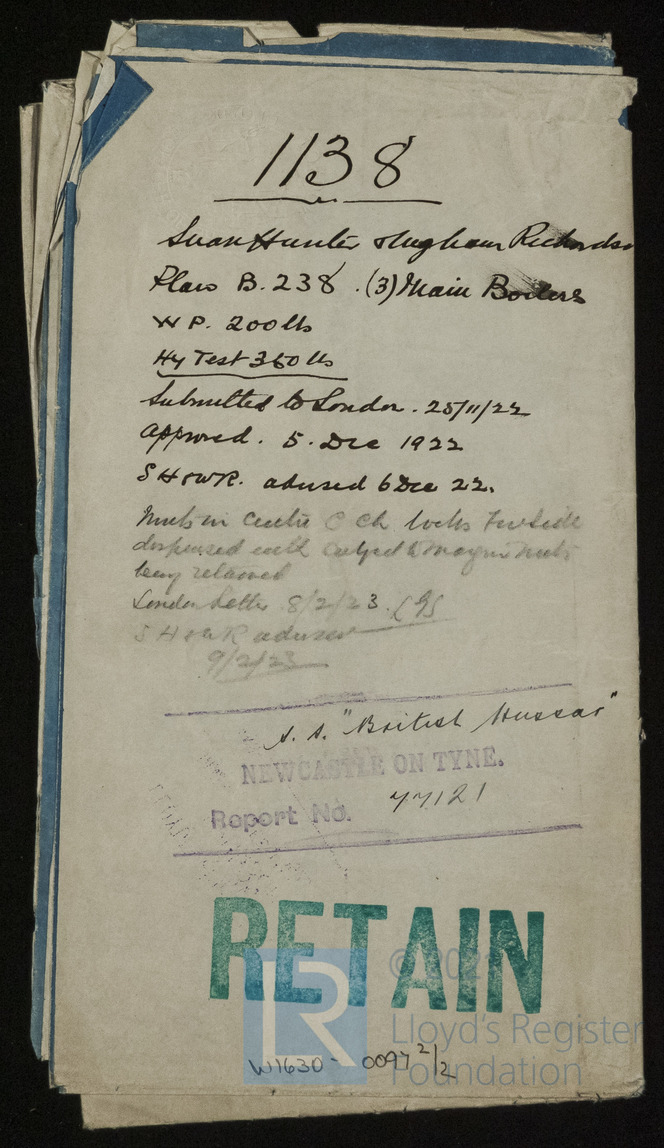 1138
Swan Hunter & Wigham Richardson
Plan B. 238 . (3) Main Boilers
W P. 200 lbs
Hy Test 350 lbs
Submitted to London . 25/11/22
Approved . 5 . Dec 1922
S H & W R. advised 6 Dec 22.
Nuts in centre C Ch
dispensed with subject to margin nuts
being retained
London Letter 8/2/23.
S H & W R advised
9/2/23
S. S. "British Hussar"
NEWCASTLE ON TYNE.
Report No. 77121
RETAIN
© 2021
Lloyd's Register
Foundation
W1630 - 0097 2/2